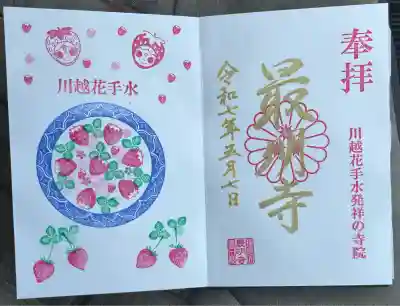 川越花手水
奉拝
川越花手水発祥の寺院
最明寺
令和七年五月七日